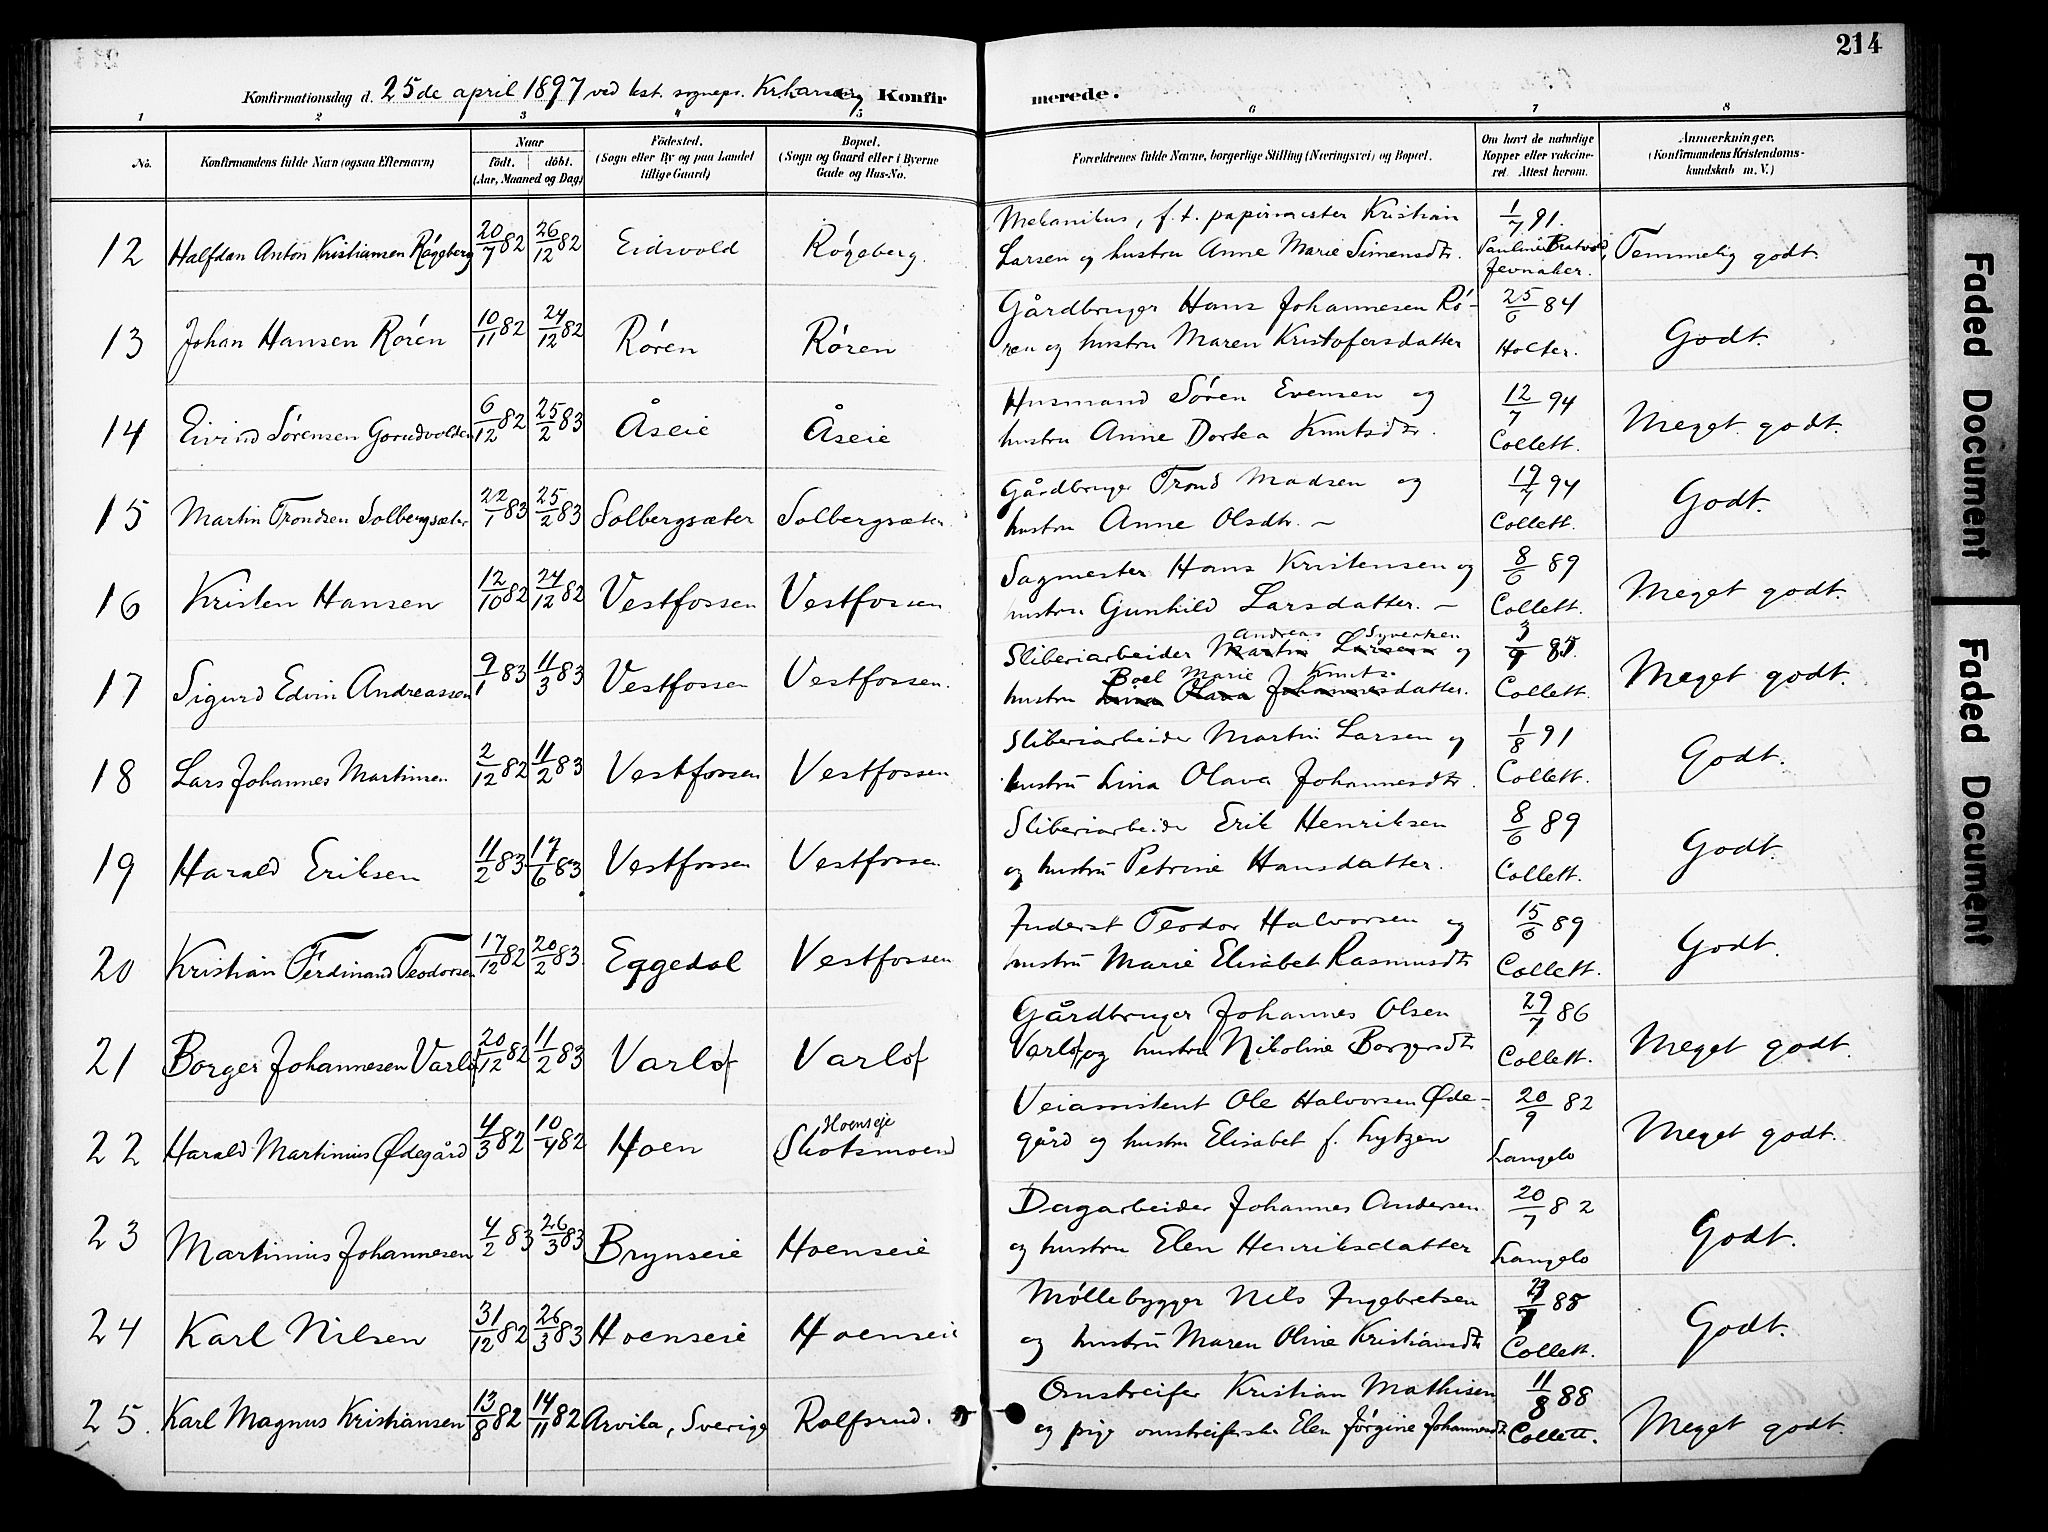 214
Konfirmationsdag d. 25de april 1897 ved kst. sognepr. Konfirmerede.
1 2 3 4 5 6 7 8
No.
Konfirmandens fulde Navn (ogsaa Efternavn)
Naar
födt. döbt.
(Aar, Maaned og Dag)
Födested.
(Sogn eller By og paa Landet
tillige Gaard)
Bopæl.
(Sogn og Gaard eller i Byerne
Gade og Hus-No.
Forældrenes fulde Navne, borgerlige Stilling (Næringsvei) og Bopæl.
Om havt de naturlige
Kopper eller vakcine-
ret. Attest herom.
Anmærkninger.
(Konfirmandens Kristendoms-
kundskab m. V.)
12 Halfdan Anton Kristiansen Røgeberg 20/7 82 26/12 82 Eidsvold Røgeberg. Mekanikus, f. t. papirmester Kristian 1/7 91.
Larsen og hustru Anne Marie Simensdtr. Pauline Bratvold, Temmelig godt.
Jevnaker.
13 Johan Hansen Røren 10/11 82 24/12 82 Røren Røren Gårdbruger Hans Johannesen Rø- 25/6 84
ren og hustru Maren Kristofersdatter Holter. Godt.
14 Eivind Sørensen Gorudvolden 6/12 82 25/2 83 Åseie Åseie Husmand Søren Evensen og 12/7 94
hustru Anne Dortea Knutsdtr. Collett. Meget godt.
15 Martin Trondsen Solbergsæter 22/1 83 25/2 83 Solbergsæter Solbergsæter. Gårdbruger Trond Madsen og 19/7 94
hustru Anne Olsdtr. – Collett. Godt.
16 Kristen Hansen 12/10 82 24/12 82 Vestfossen Vestfossen. Sagmester Hans Kristensen og 8/6 89
hustru Gunhild Larsdatter. – Collett. Meget godt.
17 Sigurd Edvin Andreassen 9/1 83 11/3 83 Vestfossen Vestfossen. Andreas Syvertsen
Sliberiarbeider Martin Larsen og
Boel Marie Knuts-
hustru Lina Olava Johannesdatter. Collett. Meget godt.
18 Lars Johannes Martinsen 2/12 82 11/2 83 Vestfossen Vestfossen. Sliberiarbeider Martin Larsen og 1/8 91
hustru Lina Olava Johannesdtr. Collett. Godt.
19 Harald Eriksen 11/2 83 17/6 83 Vestfossen Vestfossen. Sliberiarbeider Erik Henriksen 8/6 89
og hustru Petrine Hansdatter. Collett. Godt.
20 Kristian Ferdinand Teodorsen 17/12 82 20/2 83. Eggedal Vestfossen Inderst Teodor Halvorsen og 15/6 89
hustru Marie Elisabet Rasmusdtr Collett. Godt.
21 Borger Johannesen Varlo 20/12 82 11/2 83 Varlo Varlo Gårdbruger Johannes Olsen 29/7 86
Varlo og hustru Nikoline Borgersdtr Collett. Meget godt.
22 Harald Martinius Ødegård 4/3 82 10/4 82 Hoen Hoenseje
(Skotsmoen) Veiassistent Ole Halvorsen Øde- 20/9 82
gård og hustru Elisabet f. Lytzen Langelo Meget godt.
23 Martinius Johannesen 4/2 83 26/3 83 Brynseie Hoenseie Dagarbeider Johannes Andersen 20/7 82
og hustru Elen Henriksdatter Langelo Godt.
24 Karl Nilsen 31/12 82 26/3 83 Hoenseie Hoenseie Møllebygger Nils Ingebretsen 85
og hustru Maren Oline Kristiansdtr Collett. Godt.
25. Karl Magnus Kristiansen 13/8 82 14/11 82 Arvika, Sverige Rolfsrud. Omstreifer Kristian Mathisen 11/8 88
og pige omstreiferske Elen Jørgine Johannesdtr Collett. Meget godt.
Faded Document
Faded Document